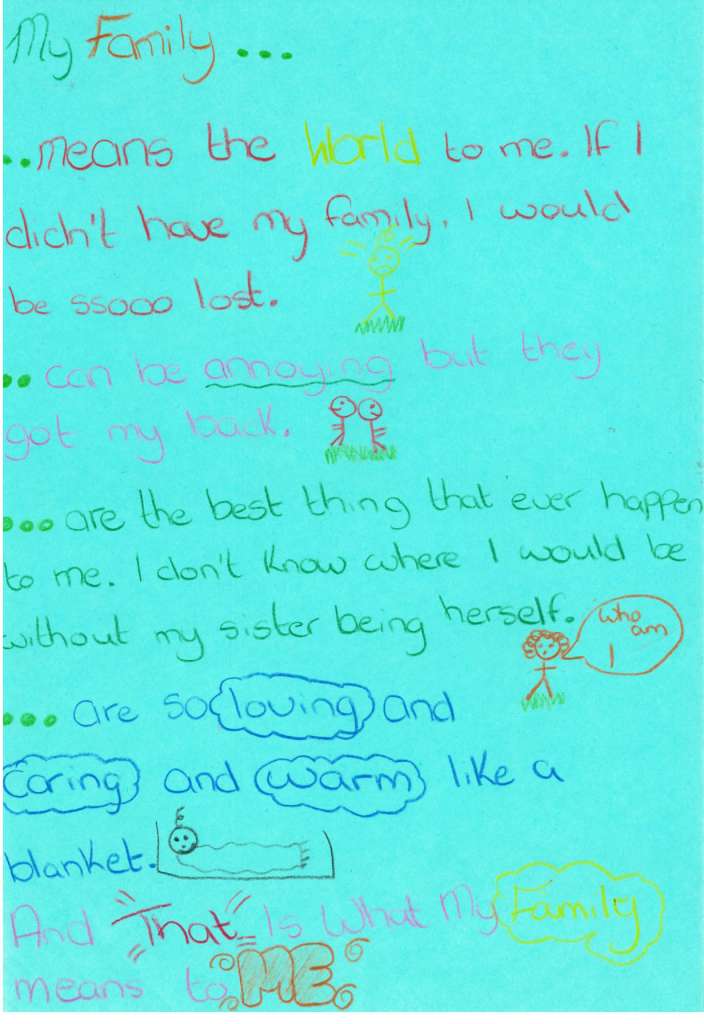 My Family ...
..means the World to me. If I
didn't have my family, I would
be ssooo lost.
.. can be annoying but they
got my back.
... are the best thing that ever happen
to me. I don't know where I would be
without my sister being herself.
who am I
... are so loving and
caring and warm like a
blanket.
And "That" Is What My Family
means to ME